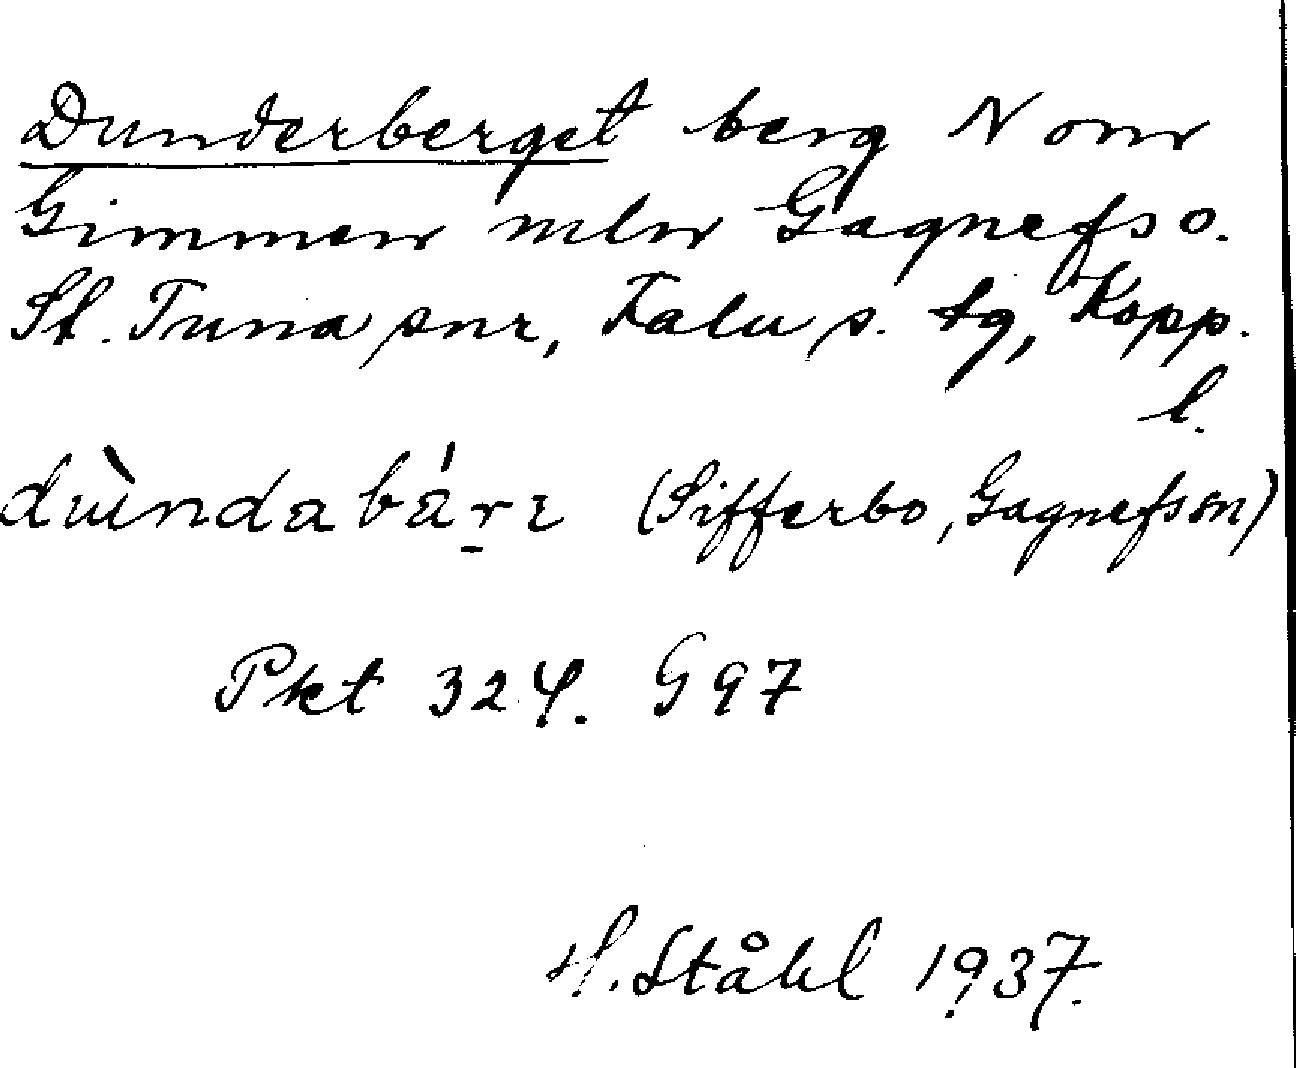 Dunderberget berg N om
Gimmen mln Gagnefs o.
St. Tuna snr, Falu s. tg, Kopp.
l.
dùndabá̱rɩ (Sifferbo, Gagnefs sn)
Pkt 324. G 97
H. Ståhl 1937.